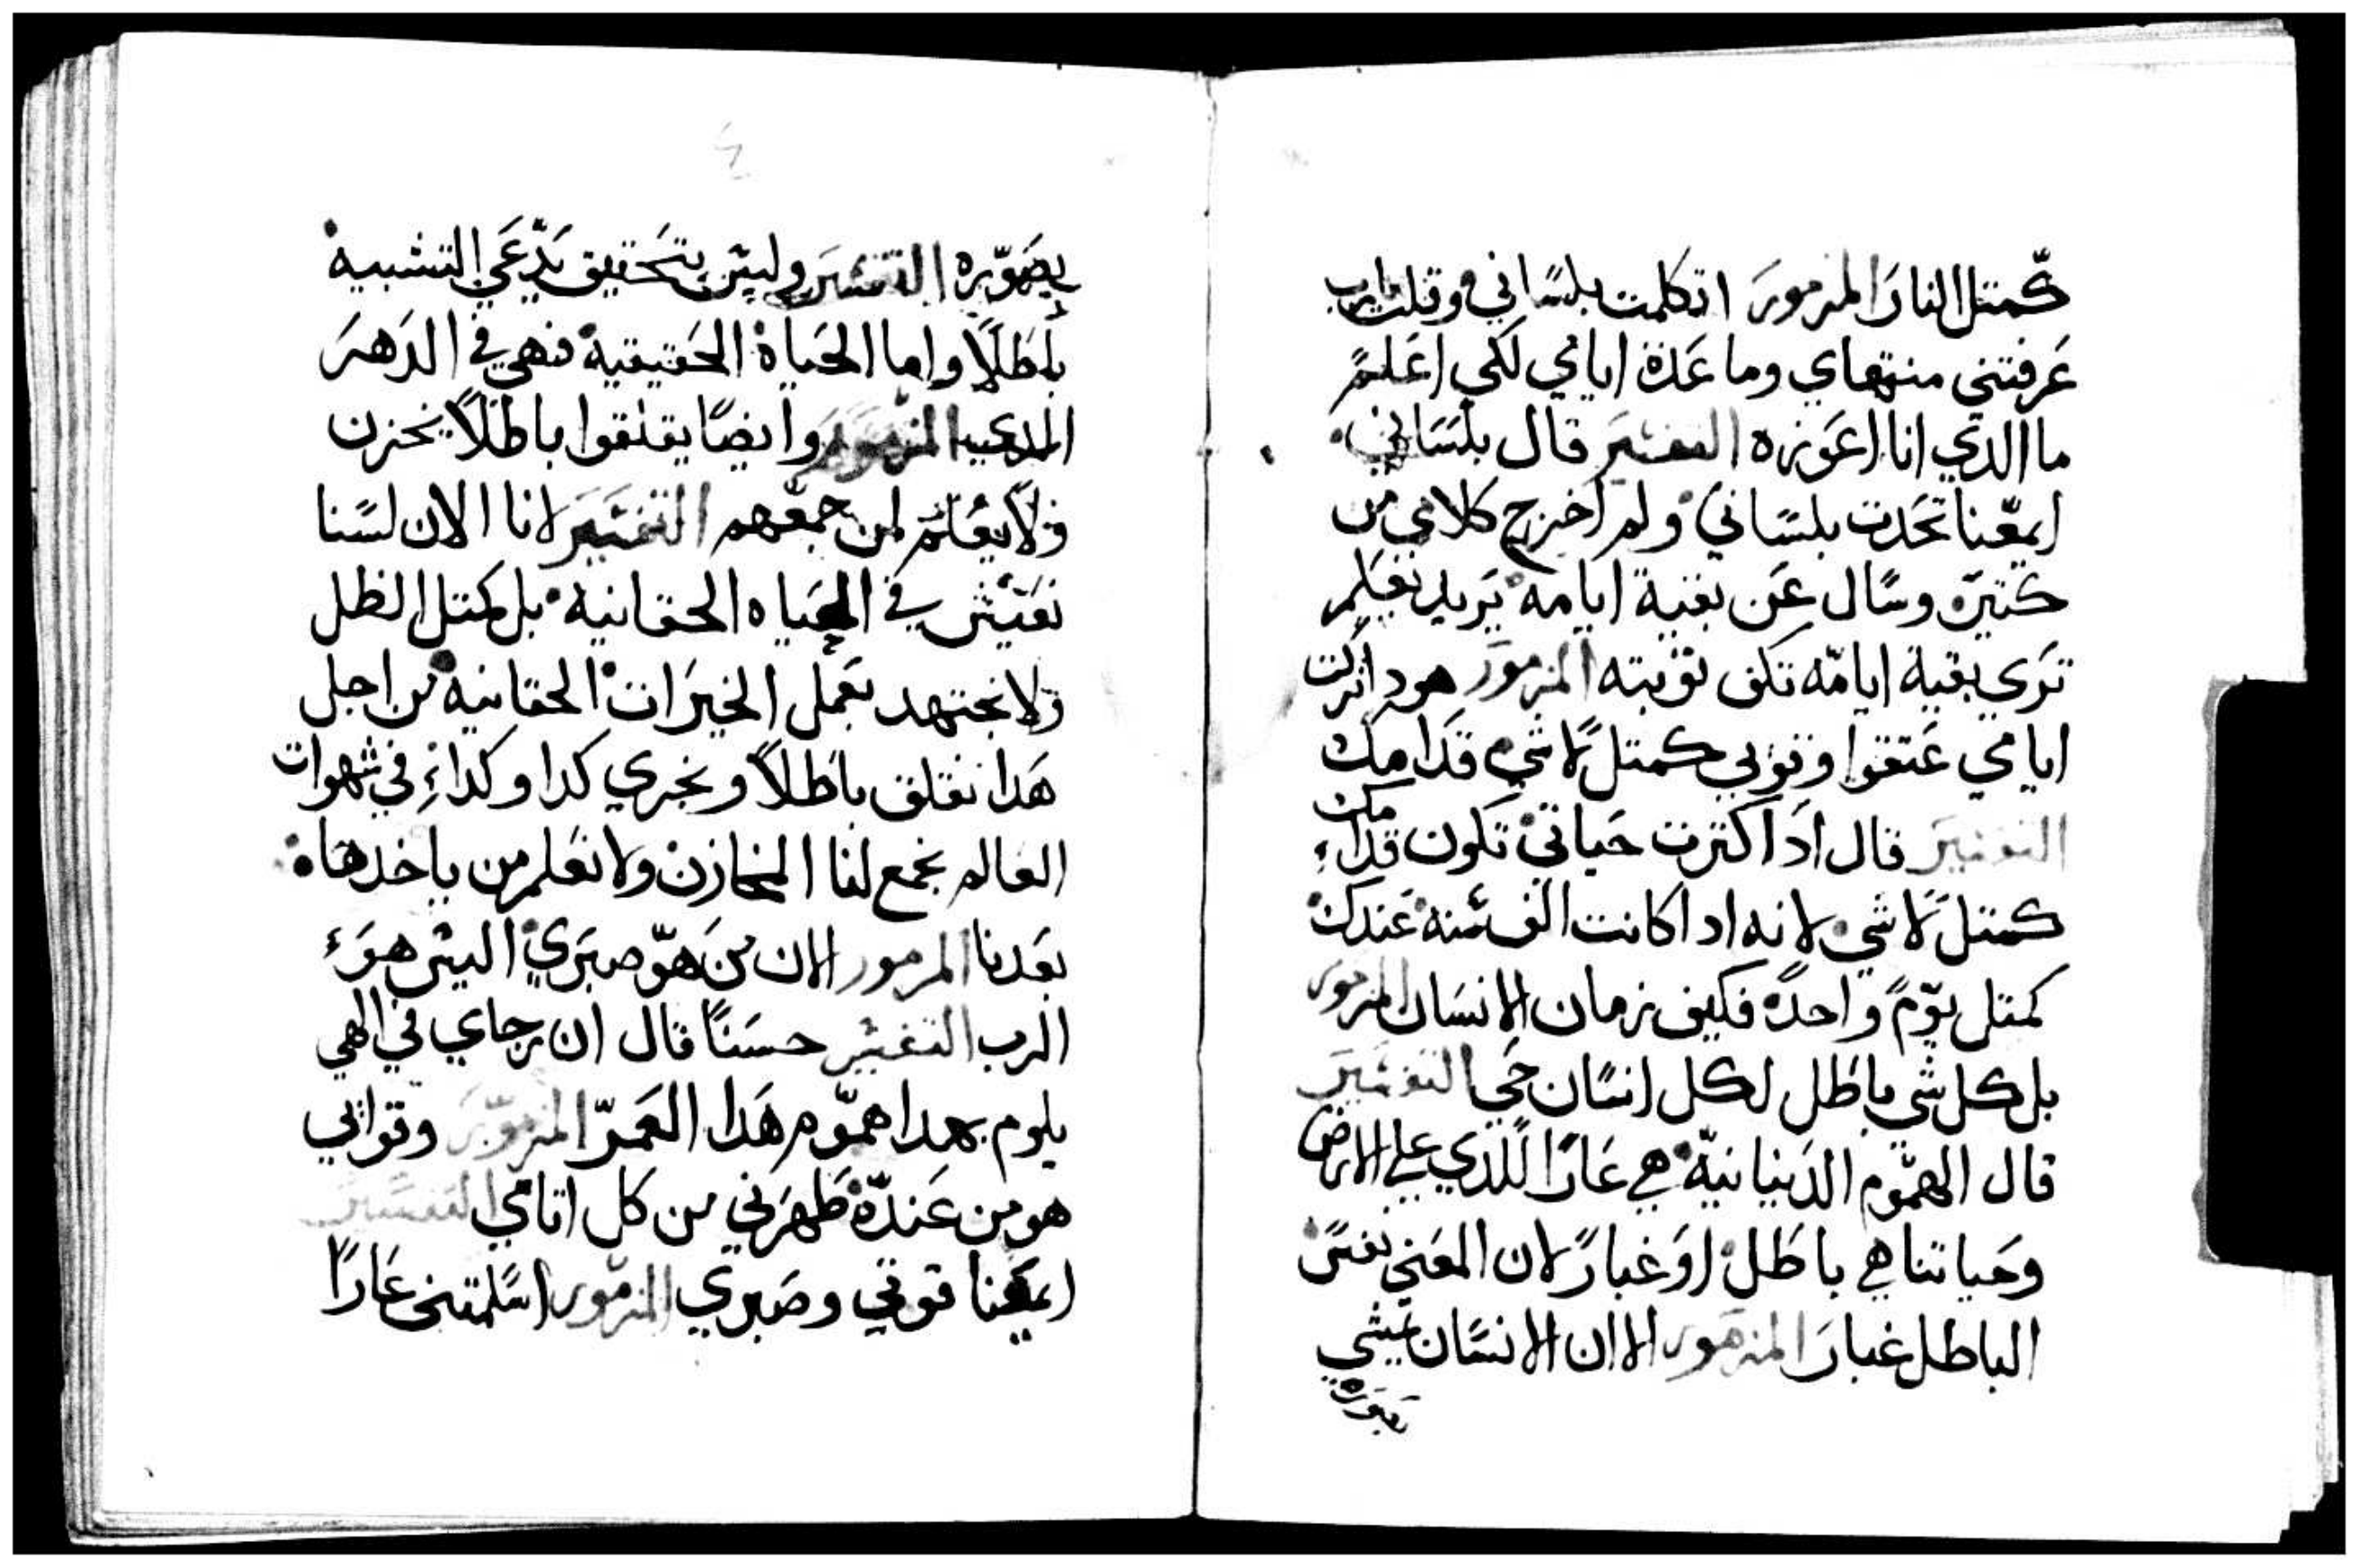 كمتل النار المزمور اتكلمت بلساني وقلت يارب
عرفتني منتهاي وما عدة ايامي لكي اعلم
ما الدي انا اعوزه التفسير قال بلساني
ايمعنا تحدت بلساني ولم اخرج كلامي من
كتيره وسال عن بقية ايامه يريد يعلم
ترى بقية ايامه تكف توبته المزمور هودا تركت
ايامي عتقوا وقوتي كمتل لاشي قدامك
التفسير قال ادا كترت حياتي تكون قدامك
كمتل لاشي لانه ادا كانت الف سنه عندك
كمتل يوم واحده فكيف زمان الانسان المزمور
بل كل شي باطل لكل انسان حي التفسير
قال الهموم الدنيانيه هي عارا للدي على الارض
وحياتنا هي باطل او غبار لان المعني نفس
الباطل غبار المزمور الا ان الانسان يمشي
بصوره
بصوره التفسير وليس بتحقيق يدعي التشبيه
باطلا واما الحياة الحقيقية فهي في الدهر
المزمور وايضا يقلقوا باطلا يخزن
ولا يعلم لمن جمعهم التفسير لانا الان لسنا
نعيش في الحياه الحقانية بل كمتل الظل
ولا نجتهد بعمل الخيرات الحقانية من اجل
هدا نقلق باطلا ونجري كدا وكدا في شهوات
العالم نجمع لنا المخازن ولا نعلم من ياخدها
بعدنا المزمور الان من هو صبري اليس هو
الرب التفسير حسنا قال ان رجاي في الهي
يلوم بهدا هموم هدا العمر المزمور وقواتي
هو من عنده طهرني من كل اتامي التفسير
ايمعنا قوتي وصبري المزمور اسلمتني عارا